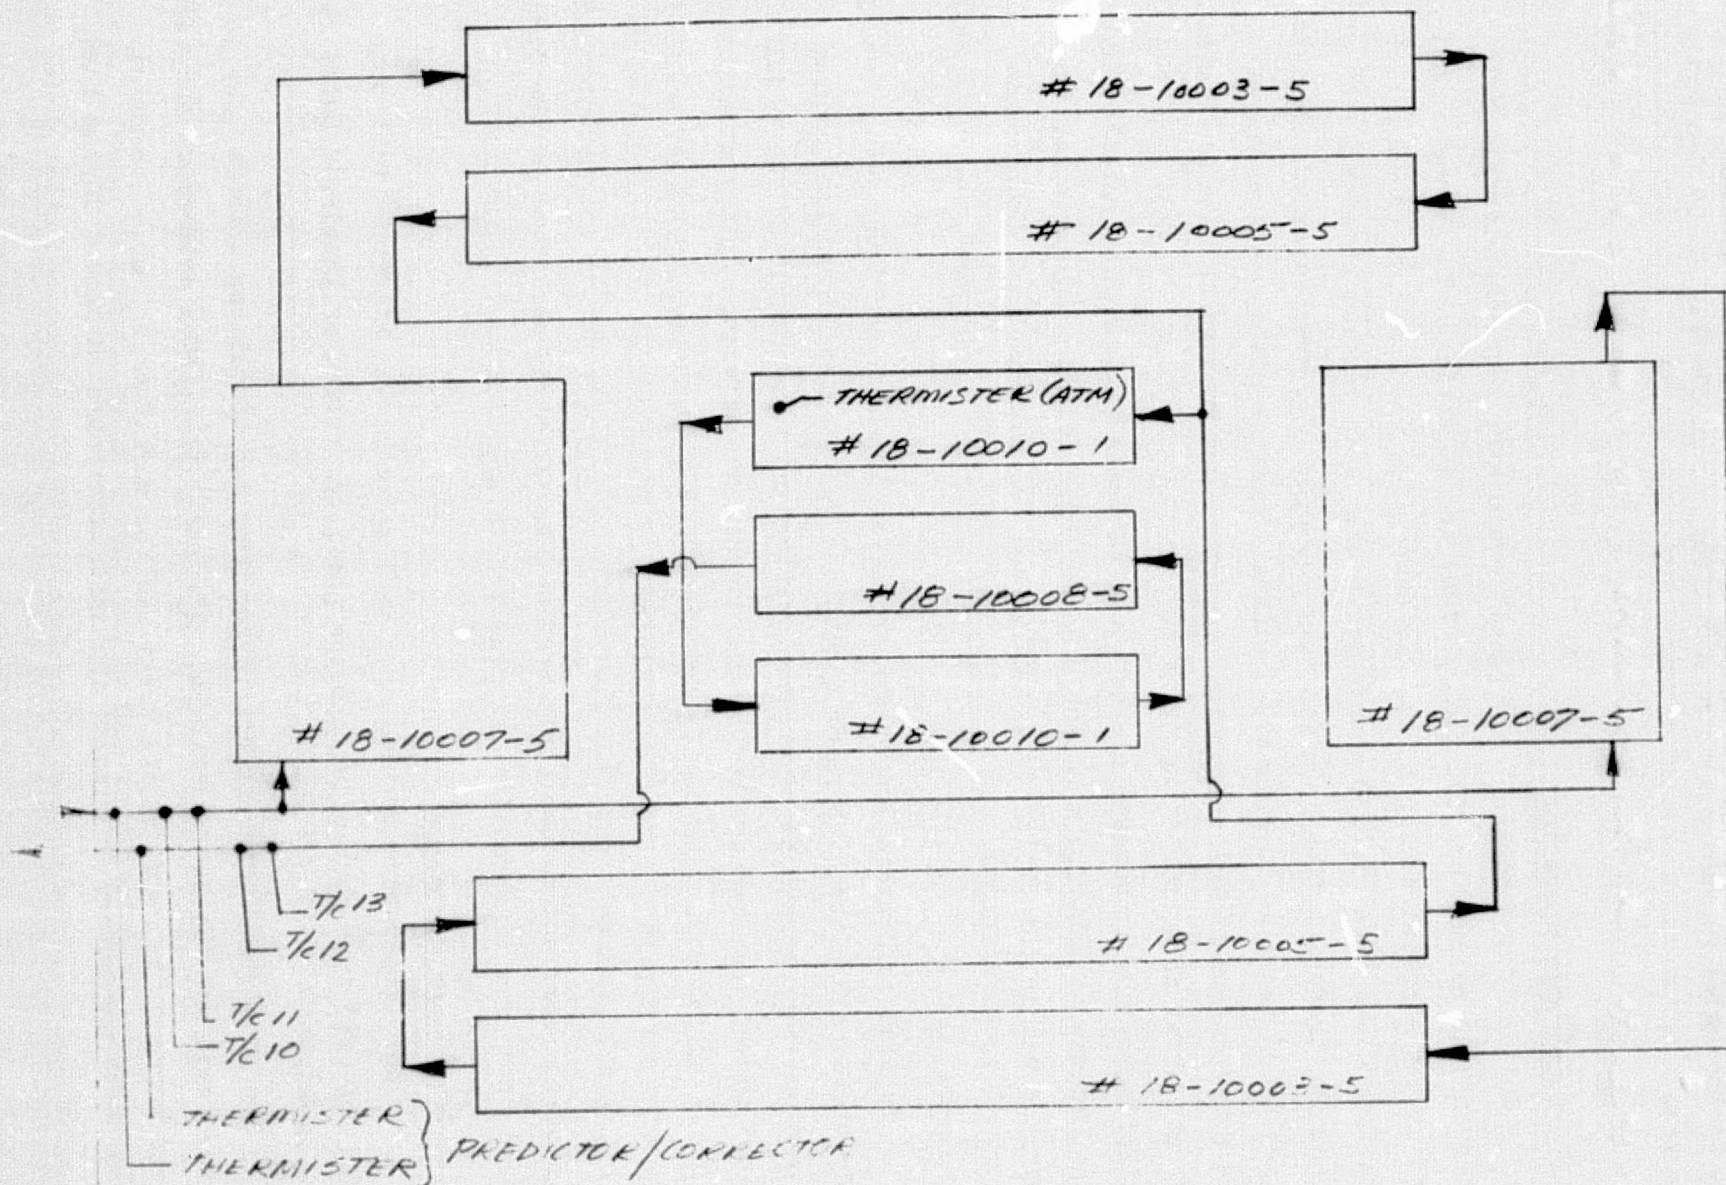 # 18-10003-5
# 18-10005-5
THERMISTER (ATM)
# 18-10010-1
# 18-10008-5
# 18-10010-1
# 18-10007-5
# 18-10007-5
T/C 13
T/C 12
# 18-10005-5
T/C 11
T/C 10
# 18-10003-5
THERMISTER
THERMISTER
PREDICTOR/CORRECTOR